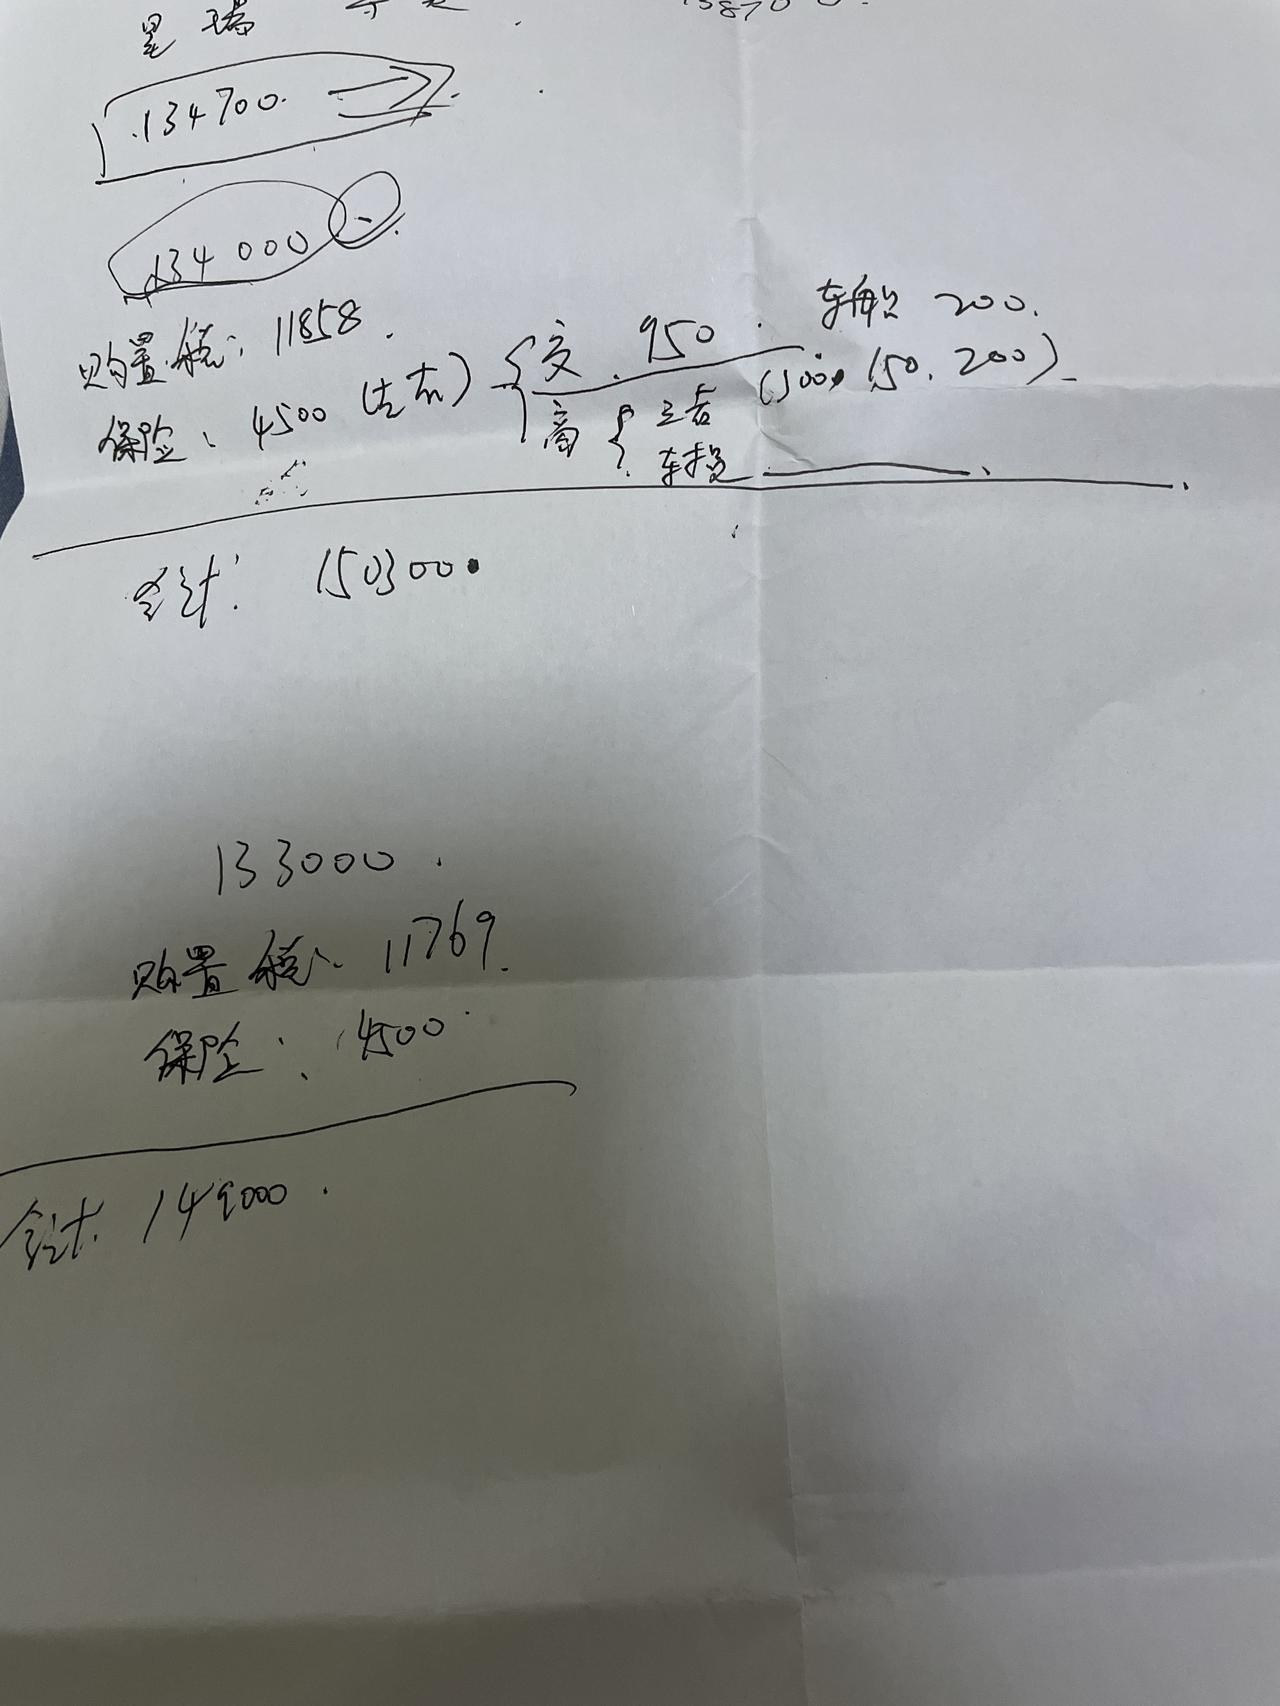 星瑞
134700.
134000
购置税: 11858.
保险: 4500 (左右) { 交 950. 车船 200.
商 { 三者 (100, 150, 200)
车损
合计: 150300
133000.
购置税: 11769.
保险: 4500
合计: 149000.